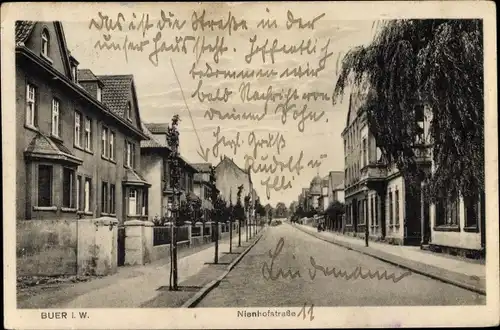 Das ist die Straße in der
unser Haus steht. Hoffentlich
bekommen wir
bald Nachricht von
Deinem Sohn.
Herzl. Gruß
Rudolf u
Elli
Lindermann
BUER I. W.
Nienhofstraße 11